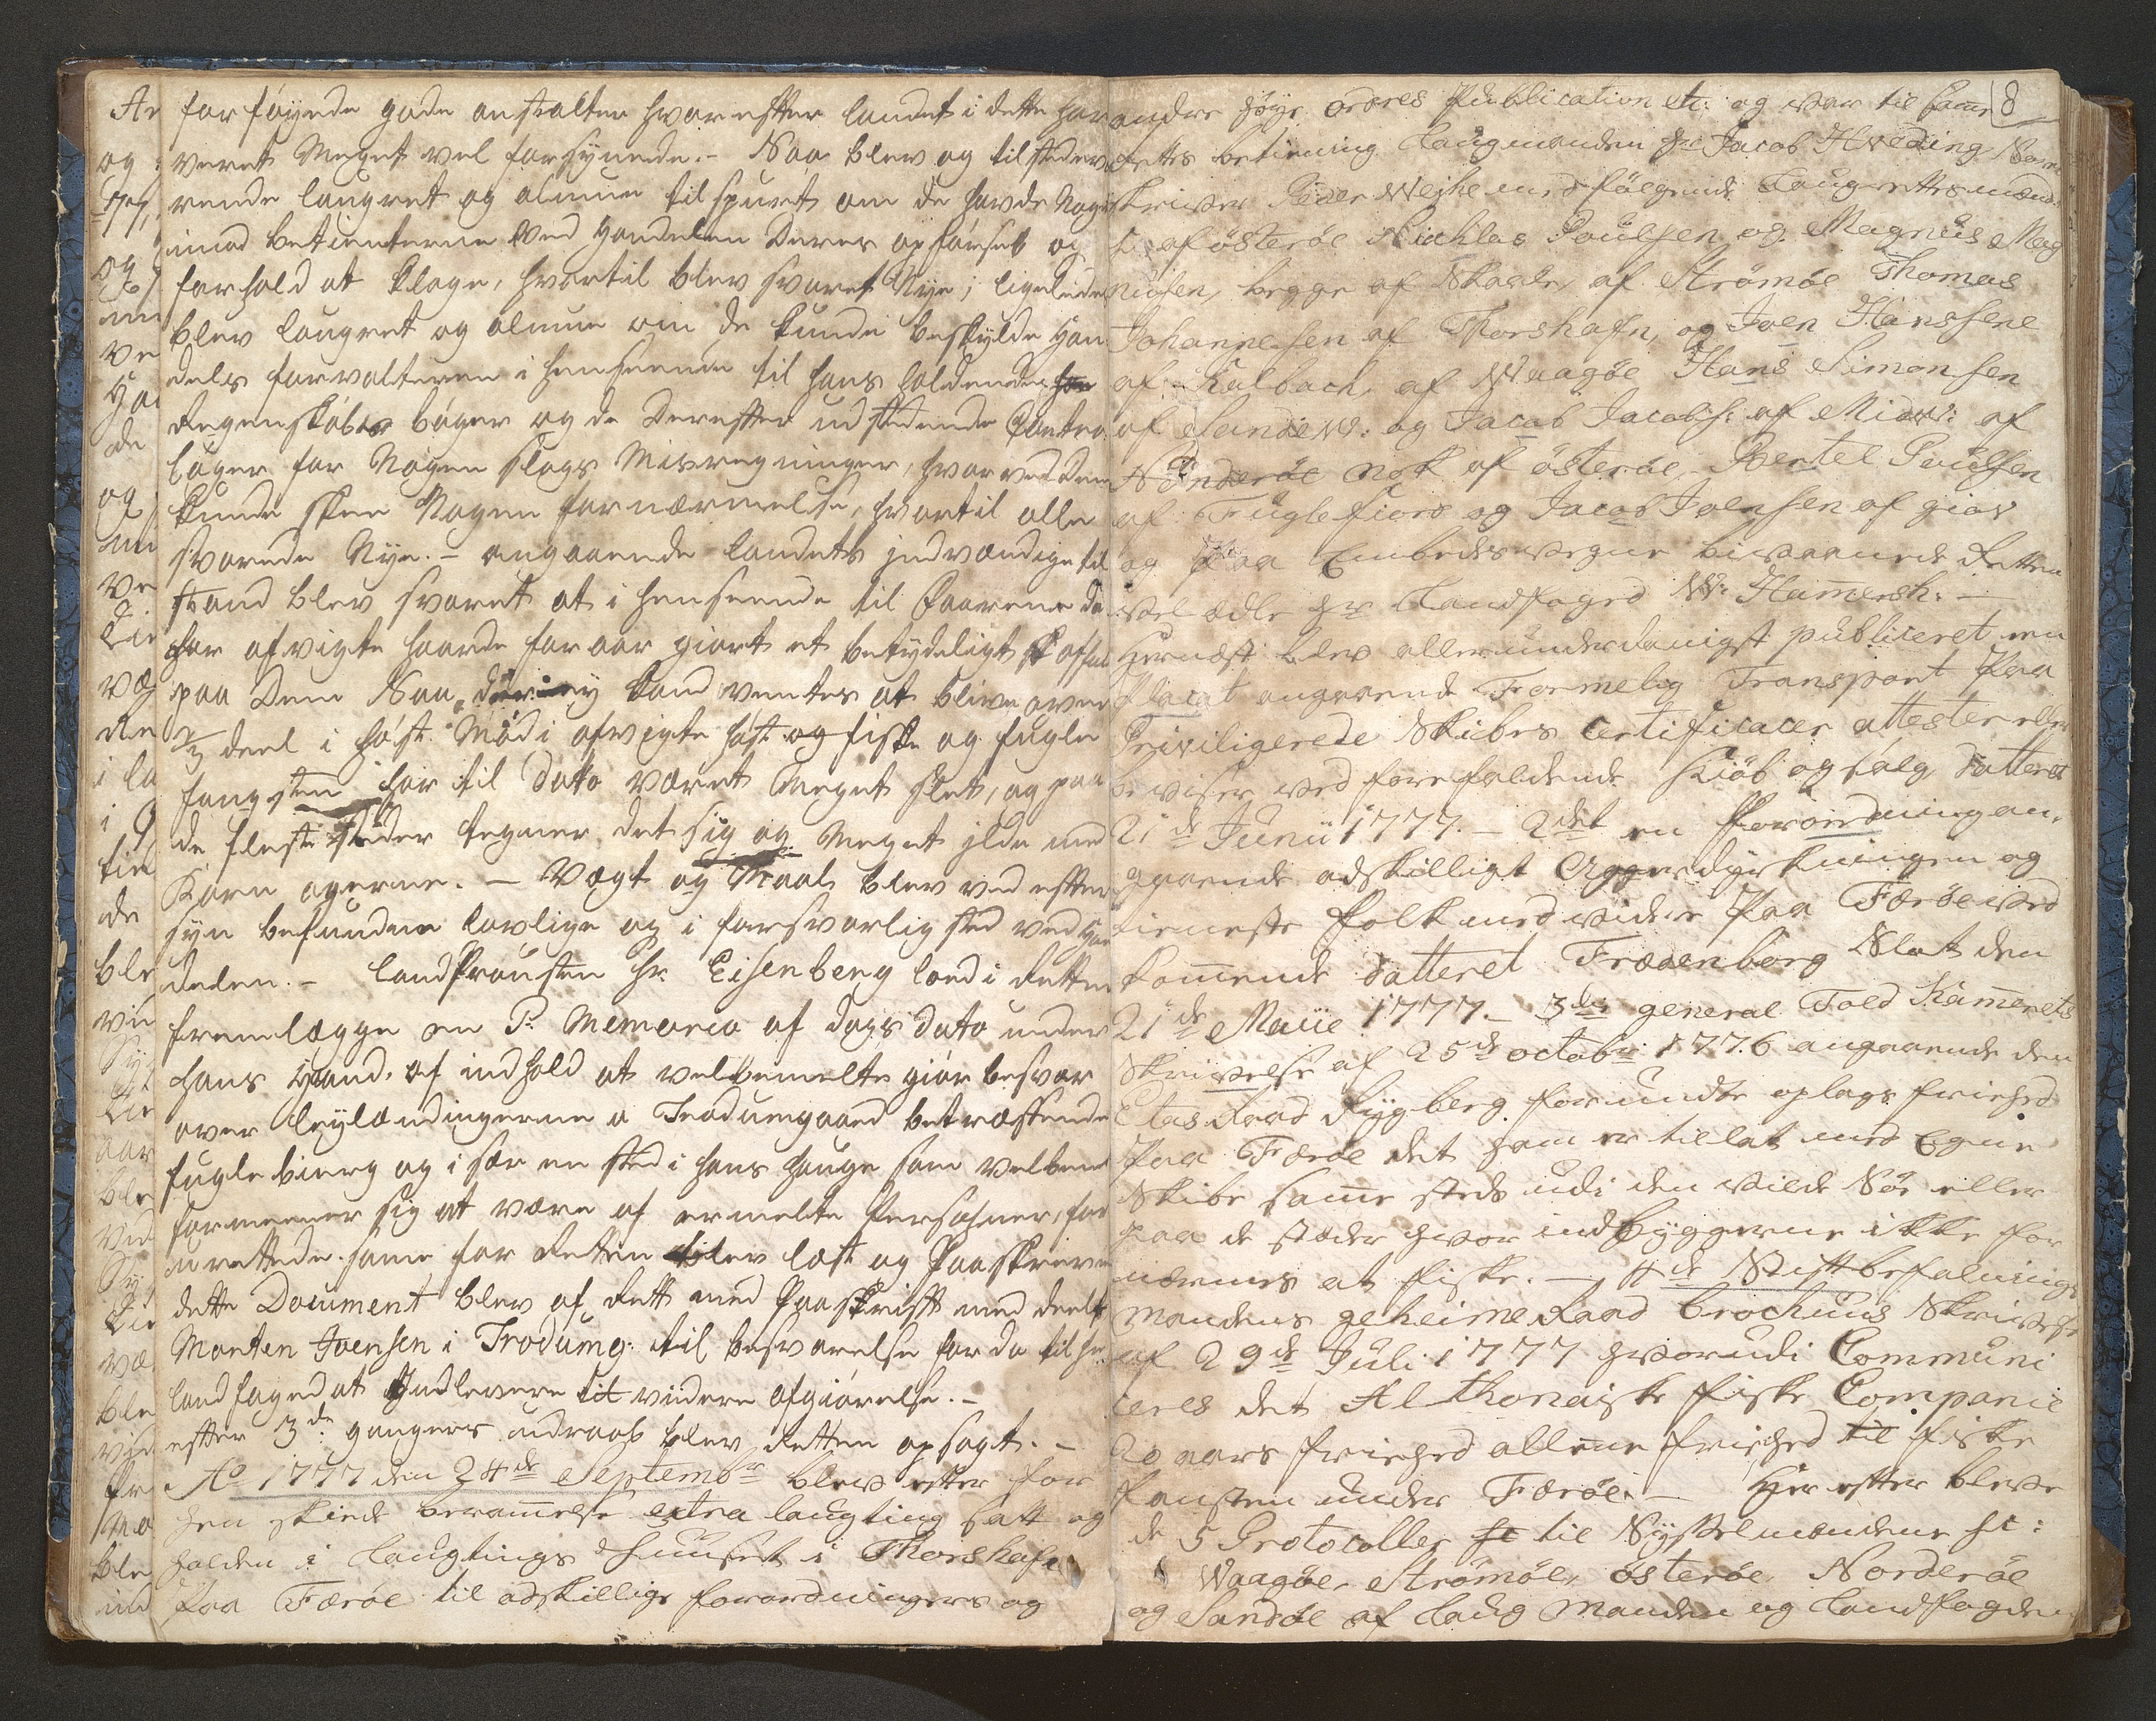 forföyede gode anstalter hvorefter landet i dette har
veret Meget vel forsynede. – Naa blev og tilstedevæ
rende laugret og almue tilspurt om de havde Noget
imod betienterne ved Handelen deres opförsel og
forhold at klage, hvortil blev svaret Nye; ligeleedes
blev laugret og almue om de kunde beskylde Han
dels forvalteren i henseende til hans holdende
Regenskabs böger og de derefter udstedende Contra
böger for Nogen slags Misregninger, hvorved dem
kunde skee Nogen fornærmelse, hvortil alle
svarede Nye. – angaaende landets indvændige til
stand blev svaret at i henseende til faarene da
har afvigte haarde foraar giort et betydeligt
paa dem Naa, kand ventes at blive over
deel i höst Mod i afvigte höst og fiske og fugle
fangsten har til dato været Meget slet, og paa
de fleste stæder tegner det sig og Meget ilde med
Korn agerne. – Vægt og Maal blev ved efter
syn befunden lovlige og i forsvarlig sted ved Han
delen. – landProusten Hr. Eisenberg lod i Retten
fremlægge en P. Memoria af dags dato under
hans Haand, af indhold at velbemelte giör besvær
over leylændingerne a Trodumgaard betreffende
fugle bierg og i sær en sted i hans hauge som velbem
formeener sig at være af ermelte Personer, for
urettede. same for Retten blev læst og Paaskreven
dette Document blev af Rett med Paaskrift med deelt
Morten Joensen i Trodumg: til besvarelse for da til Hr.
landfaged at Indlevere til videre afgiörelse. –
efter 3de gangers udraab blev Retten opsagt. –
Ao 1777 den 24de Septembr blev efter for
hen skiede berammelse extra laugting satt og
holden i Laugtings Huuset i Thorshafn
Paa Færöe til adskillige forordningers og
8
andre höye ordres Publication etc: og var til samme
Retts betiening Laugmanden Hr Jacob Hveding Soren
skriver Peder Wejhe med fölgende Laugrettesmænd:
af österöe Nichlas Poulsen og Magnus Mag
nusen, begge af Skaale, af Strömöe Thomas
Johannesen af Thorshafn, og Joen Hanssene
af Kalbach, af Waagöe Hans Simonsen
af Sandew: og Jacob Jacobs: af Midv: af
Norderöe nok af österöe, Bertel Poulsen
af Fuglefiord og Jacob Joensen af giov
og Paa Embeds vegne bivaanede Retten
vel ædle Hr Landfoged W: Hammersh: –
Hernæst blev allerunderdanigst publiceret en
Placat angaaende Formelig Transport Paa
Priviligerede Skibes Certificacer attester eller
beviser ved forefaldende Kiöb og salg datteret
21de Junii 1777. – 2det en Forordning an-
gaaende adskilligt Ager dyrkningen og
tieneste Folk med videre Paa Færöe ved
kommende datteret Frædenborg Slot den
21de Maiie 1777. – 3die general Told Kammerets
Skrivelse af 25de octobr: 1776 angaaende den
Etats Raad Rygberg forundte oplags friehed
Paa Færöe det ham er tillat med Egne
Skibe samme steds udi den vilde Söe eller
Paa de stæder hvor indbyggerne ikke for
nærmes at fiske. – 4de Stiftbefalnings
mandens geheime Raad Brochuus Skrivelse
af 29de Juli 1777 hvorudi Communi
ceres det Althonaiske fiske Companie
20 aars friehed allene friehed til fiske
fangsten under Færöe. – Her efter bleve
de 5 Protocoller til Sysselmændene
Waagöe, Strömöe, österöe, Norderöe
og Sandöe af Laug Manden og Landfogden